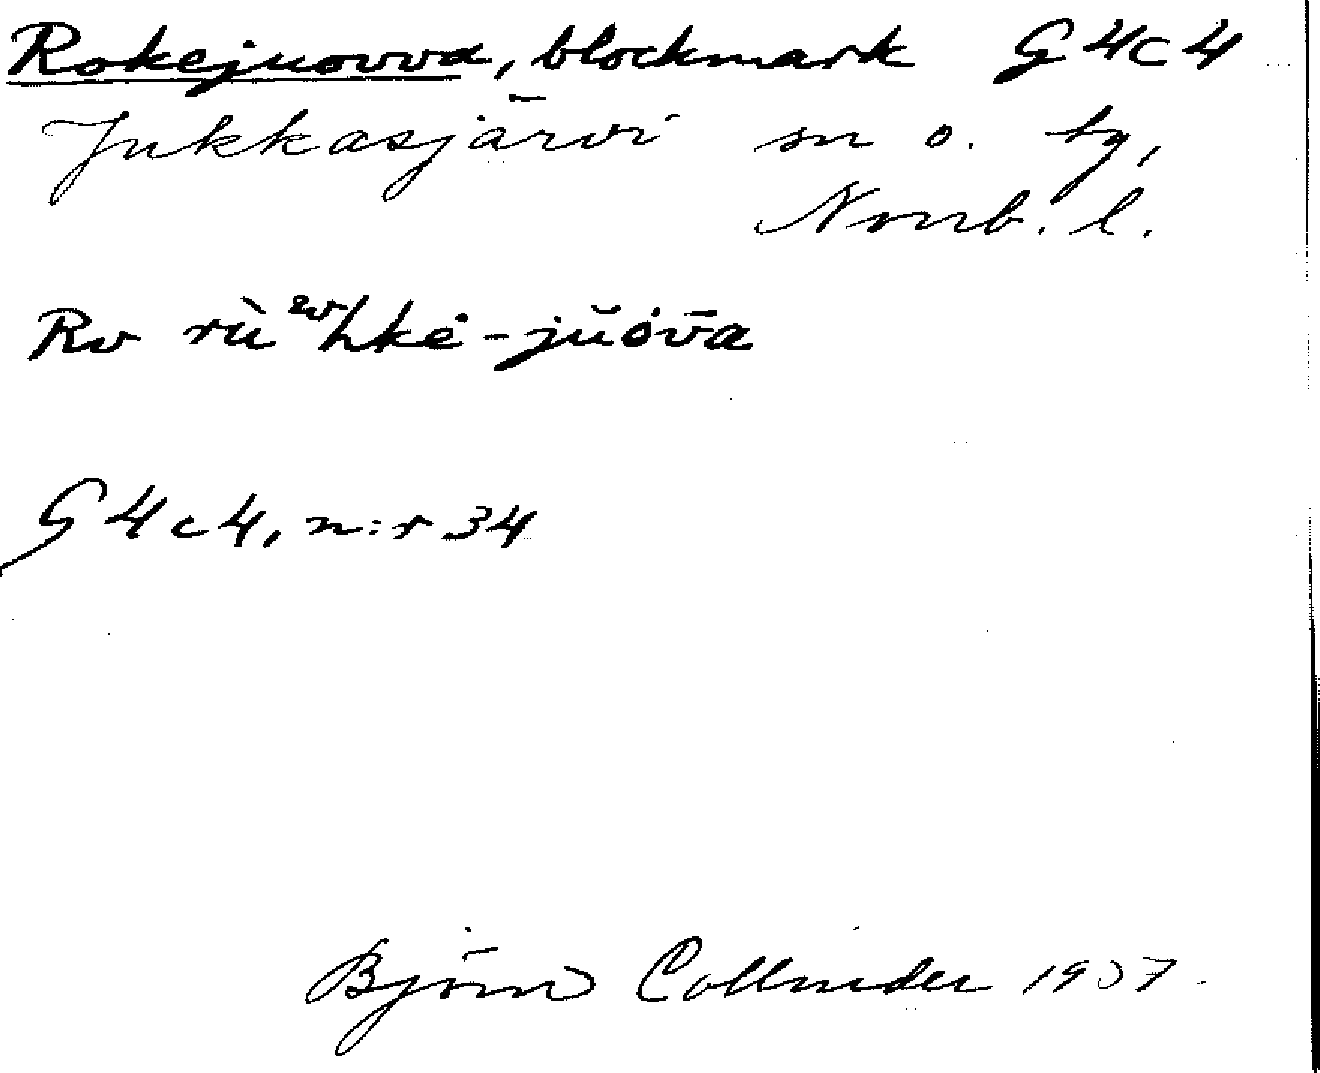 Rokejuovva, blockmark G4c4
Jukkasjärvi sn o. tg,
Norrb. l.
Rv
G4c4, n:r 34
Björn Collinder 1937.